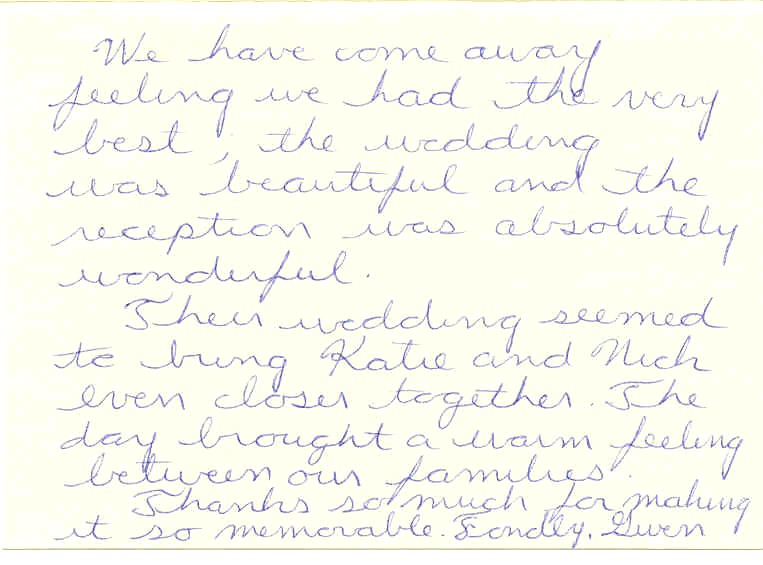 We have come away
feeling we had the very
best; the wedding
was beautiful and the
reception was absolutely
wonderful.
Their wedding seemed
to bring Katie and Nick
even closer together. The
day brought a warm feeling
between our families.
Thanks so much for making
it so memorable. Fondly, Gwen